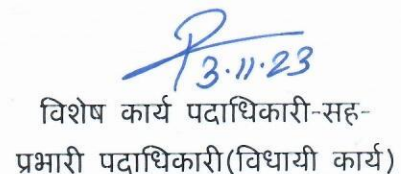 3.11.23
विशेष कार्य पदाधिकारी-सह-
प्रभारी पदाधिकारी(विधायी कार्य)